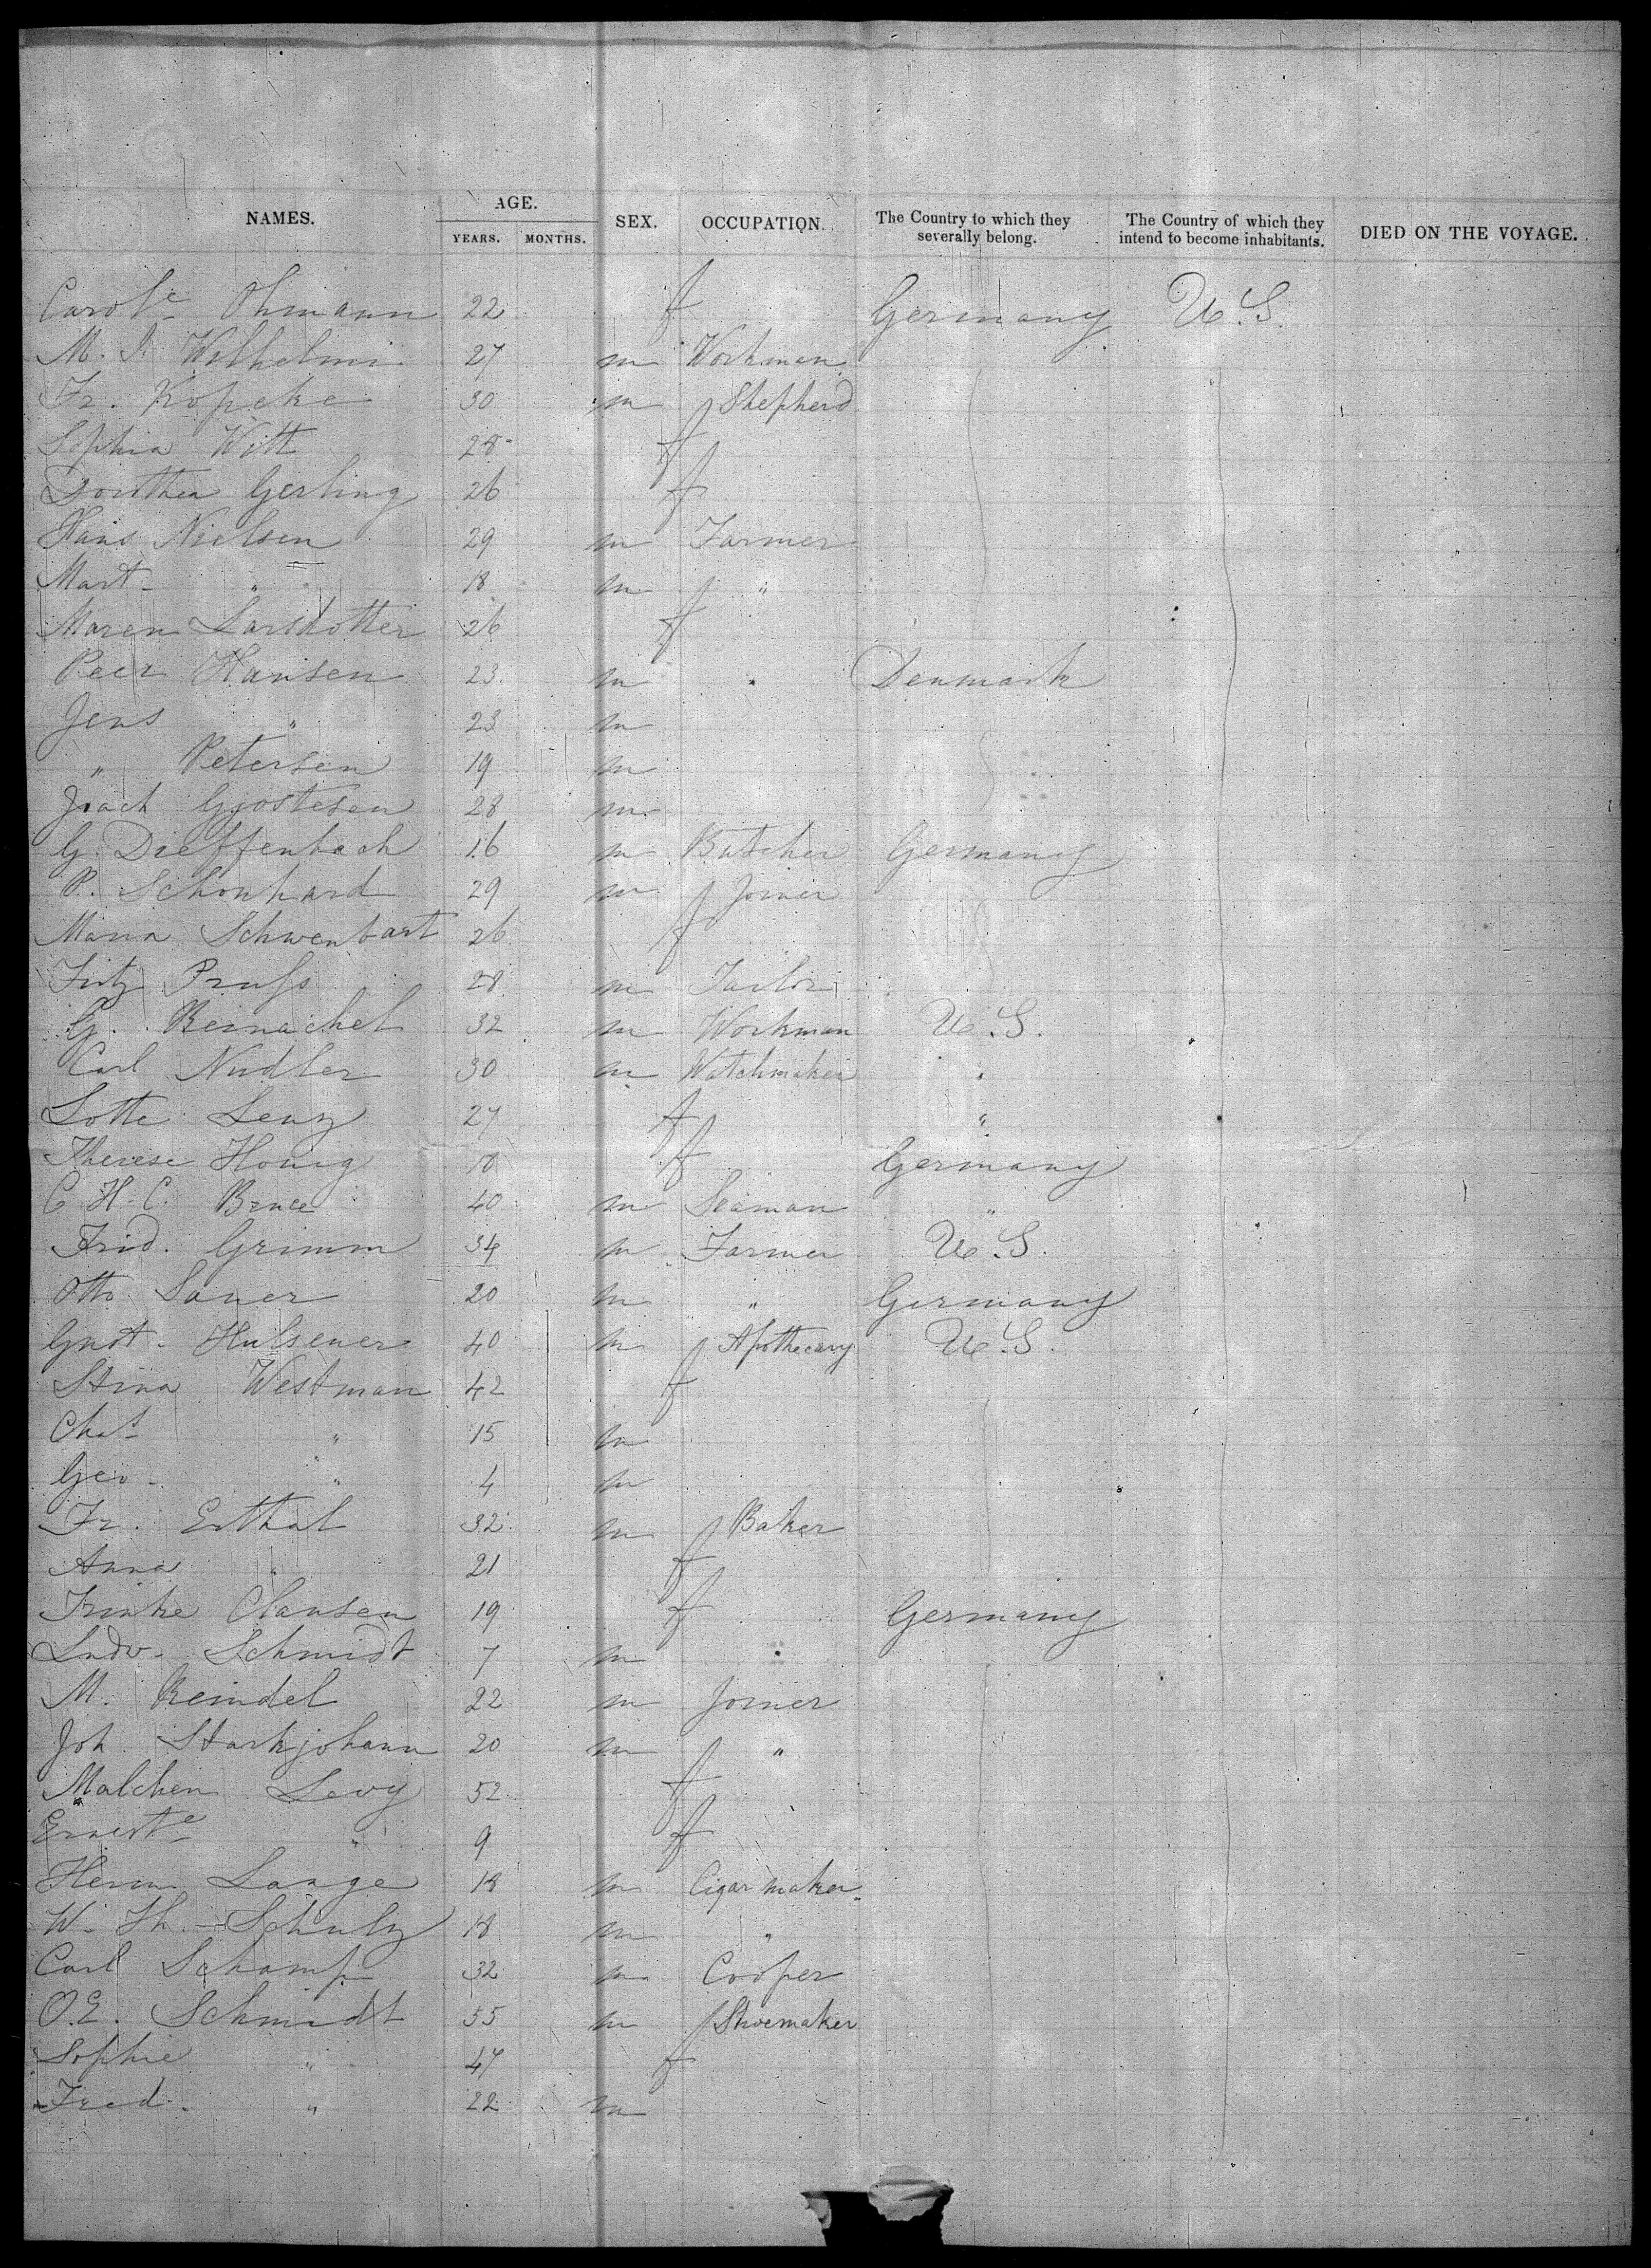 NAMES. AGE. YEARS. MONTHS. SEX. OCCUPATION. The Country to which they severally belong. The Country of which they intend to become inhabitants. DIED ON THE VOYAGE.
Carole Ohmann 22 f Germany U.S.
M. Wilhelmi 27 m Workman
Fr. Kopcke 30 m Shepherd
Sophia Witt 28 f
Dorothea Gerling 26 f
Hans Nielsen 29 m Farmer
Mart. " 18 m "
Maren Larsdotter 26 f
Peer Hansen 23 m " Denmark
Jens " 23 m
" Petersen 19 m
Joach Gjostesen 28 m
G. Dieffenbach 16 m Butcher Germany
P. Schonhard 29 m Joiner
Maria Schwenbart 26 f
Fritz Pruss 28 m Tailor
G. Bernachel 32 m Workman U.S.
Carl Nudler 30 m Watchmaker "
Lotte Lenz 27 f "
Therese Honig 18 f Germany
C. H. C. Bruce 40 m Seaman "
Frid. Grimm 34 m Farmer U.S.
Otto Sauer 20 m " Germany
Gust. Hulsener 40 m Apothecary U.S.
Stina Westman 42 f
Chas " 15 m
Geo. " 4 m
Fr. Erthal 32 m Baker
Anna " 21 f
Frinke Clausen 19 f Germany
Ludv. Schmidt 7 m
M. Reindel 22 m Joiner
Joh Starkjohann 20 m "
Malchen Levy 52 f
Erneste " 9 f
Herm. Lange 18 m Cigar maker
W. Th. Schulz 18 m "
Carl Schamp 32 m Cooper
O.E. Schmidt 55 m Shoemaker
Sophie " 47 f
Fred. " 22 m